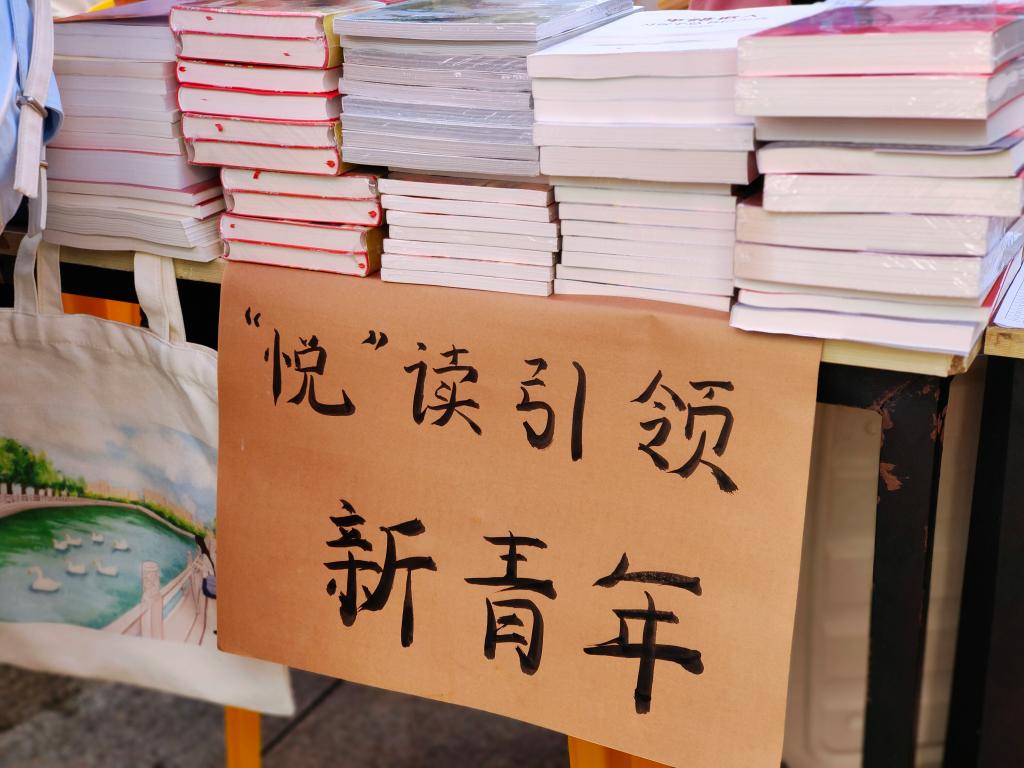 “悦”读引领
新青年